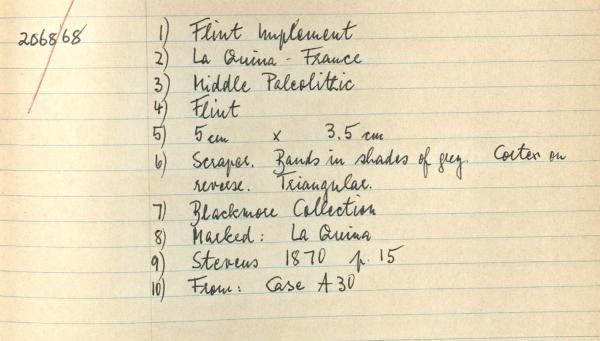 2068/68
1) Flint Implement
2) La Quina - France
3) Middle Paleolithic
4) Flint
5) 5 cm x 3.5 cm
6) Scraper. Bands in shades of grey. Cortex on
reverse. Triangular.
7) Blackmore Collection
8) Marked: La Quina
9) Stevens 1870 p. 15
10) From: Case A30